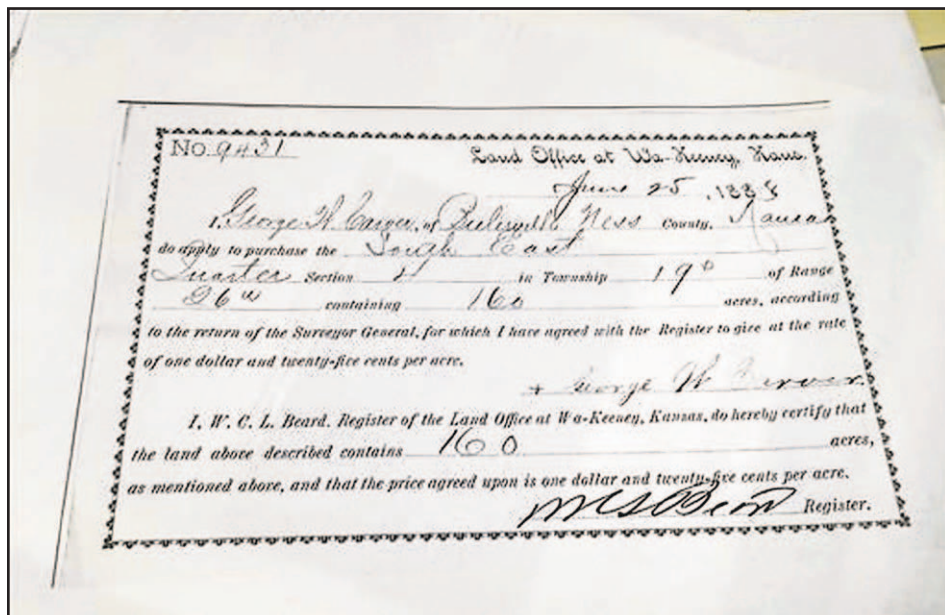 No. 9431 Land Office at Wa-Keeney, Kans.
June 25, 1888
I, George W. Carver, of Ness County, Kansas
do apply to purchase the South East
Quarter Section in Township 19 of Range
26 containing 160 acres, according
to the return of the Surveyor General, for which I have agreed with the Register to give at the rate
of one dollar and twenty-five cents per acre.
George W Carver
I, W. C. L. Beard, Register of the Land Office at Wa-Keeney, Kansas, do hereby certify that
the land above described contains 160 acres,
as mentioned above, and that the price agreed upon is one dollar and twenty-five cents per acre.
Register.